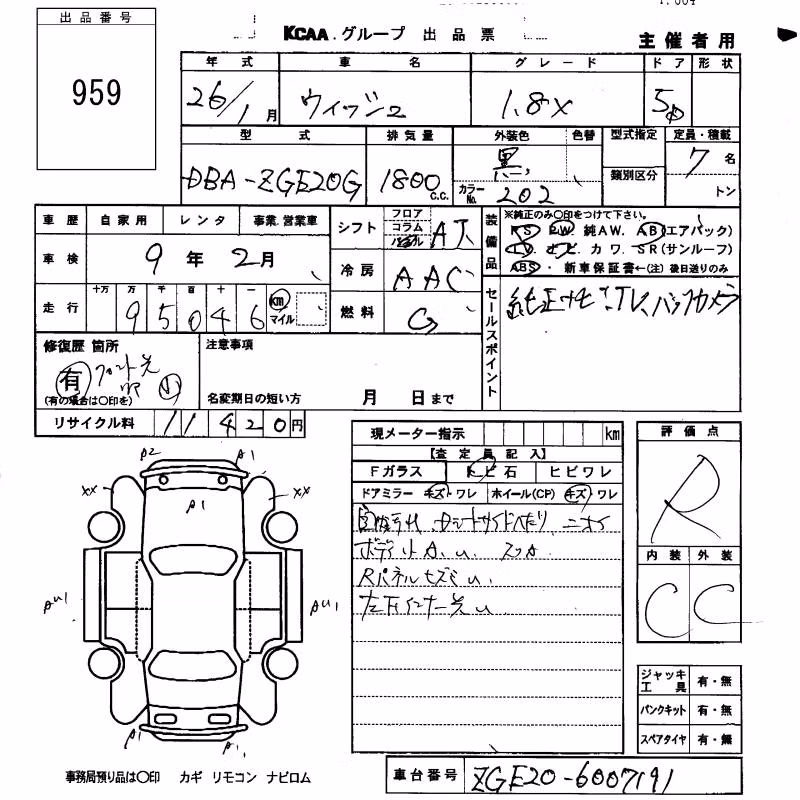 出品番号
959
KCAA グループ 出品票
主催者用
年式 車名 グレード ドア 形状
26/1月 ウィッシュ 1.8X 5D
型式 排気量 外装色 色替 型式指定 定員・積載
類別区分
DBA-ZGE20G 1800 c.c. 黒 カラーNo. 202 7名
トン
車歴 自家用 レンタ 事業.営業車
シフト フロア コラム AT
装備品 ※純正のみ○印をつけて下さい。
PS PW 純AW. AB(エアバック)
カワ. SR(サンルーフ)
ABS・新車保証書←(注)後日送りのみ
車検 9年2月
冷房 AAC
走行 十万 万 千 百 十 一
95046 km マイル
燃料 G
セールスポイント 純正ナビ TV バックカメラ
修復歴 箇所
有
(有の場合は○印を)
注意事項
名変期日の短い方 月 日まで
リサイクル料 11420円
現メーター指示 km
【査定員記入】
Fガラス トビ石 ヒビワレ
ドアミラー キズ・ワレ ホイール(CP) キズ・ワレ
ボディ
Rパネル
評価点
R
内装 外装
C C
A2 A1
A1
XX XX
AU1 AU1
A1 A1
ジャッキ工具 有・無
パンクキット 有・無
スペアタイヤ 有・無
事務局預り品は○印 カギ リモコン ナビロム
車台番号 ZGE20-6007191